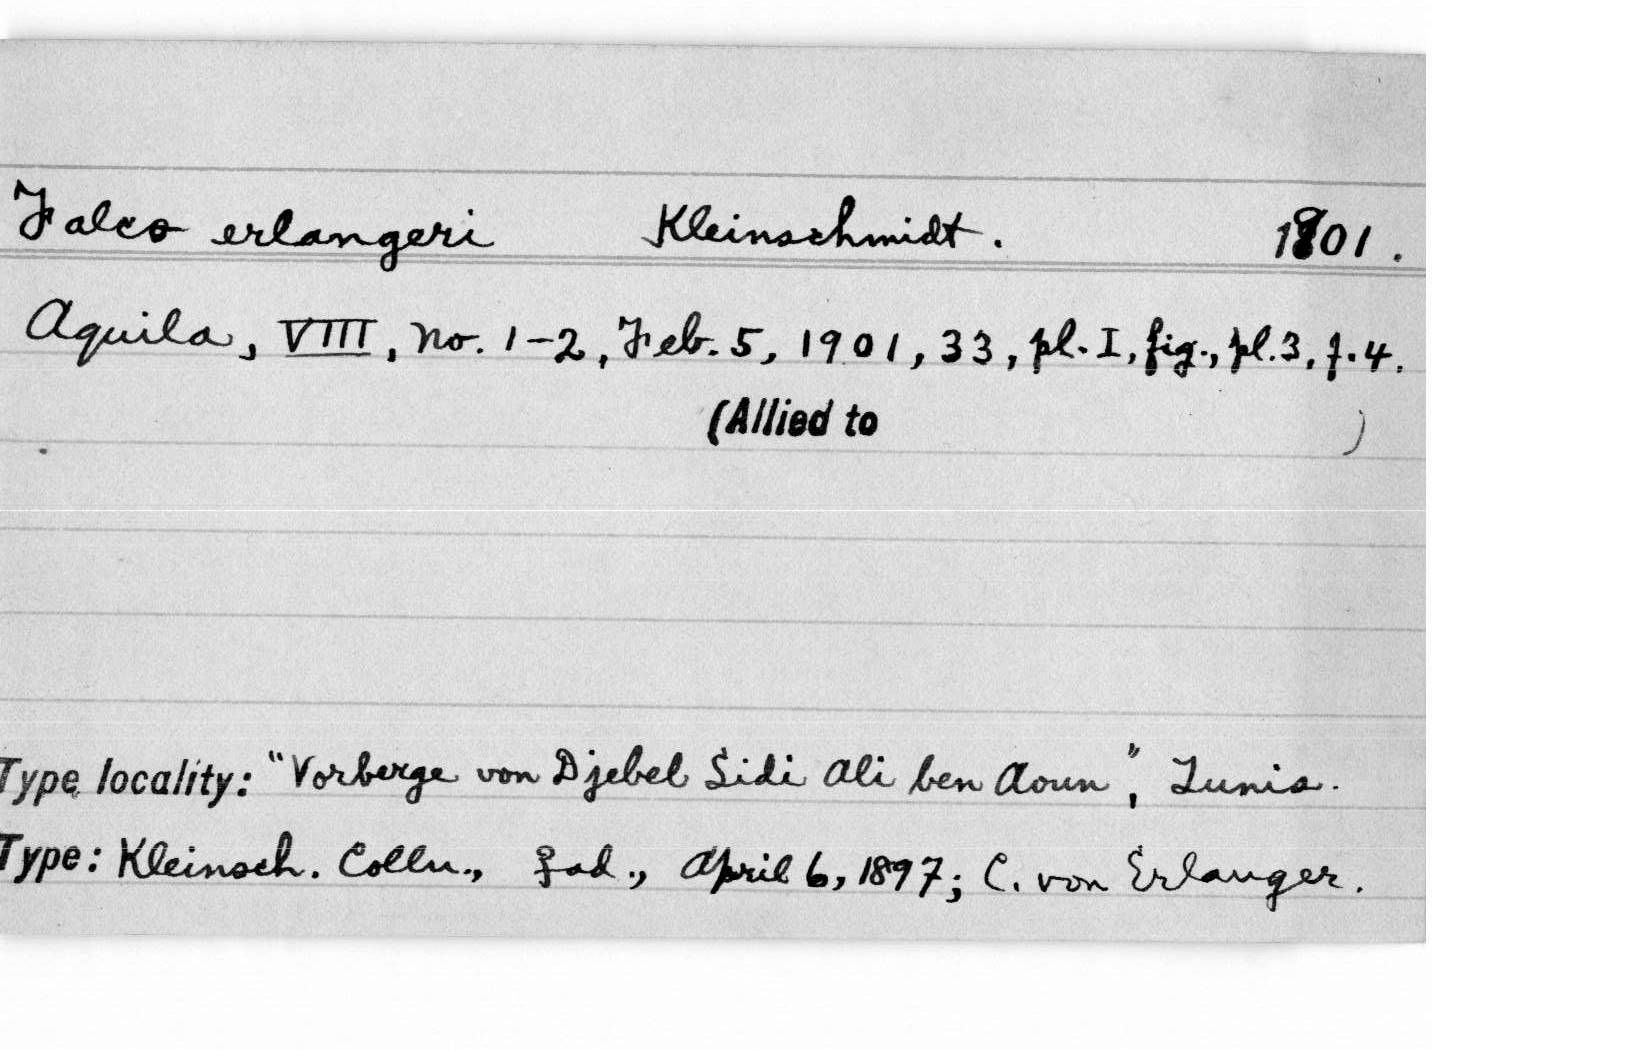 Falco erlangeri Kleinschmidt. 1901.
Aquila, VIII, no. 1-2, Feb. 5, 1901, 33, pl. I, fig., pl. 3, f. 4.
(Allied to )
Type locality: "Vorberge von Djebel Sidi Ali ben Aoun", Tunis.
Type: Kleinsch. Colln., ♀ ad., April 6, 1897; C. von Erlanger.